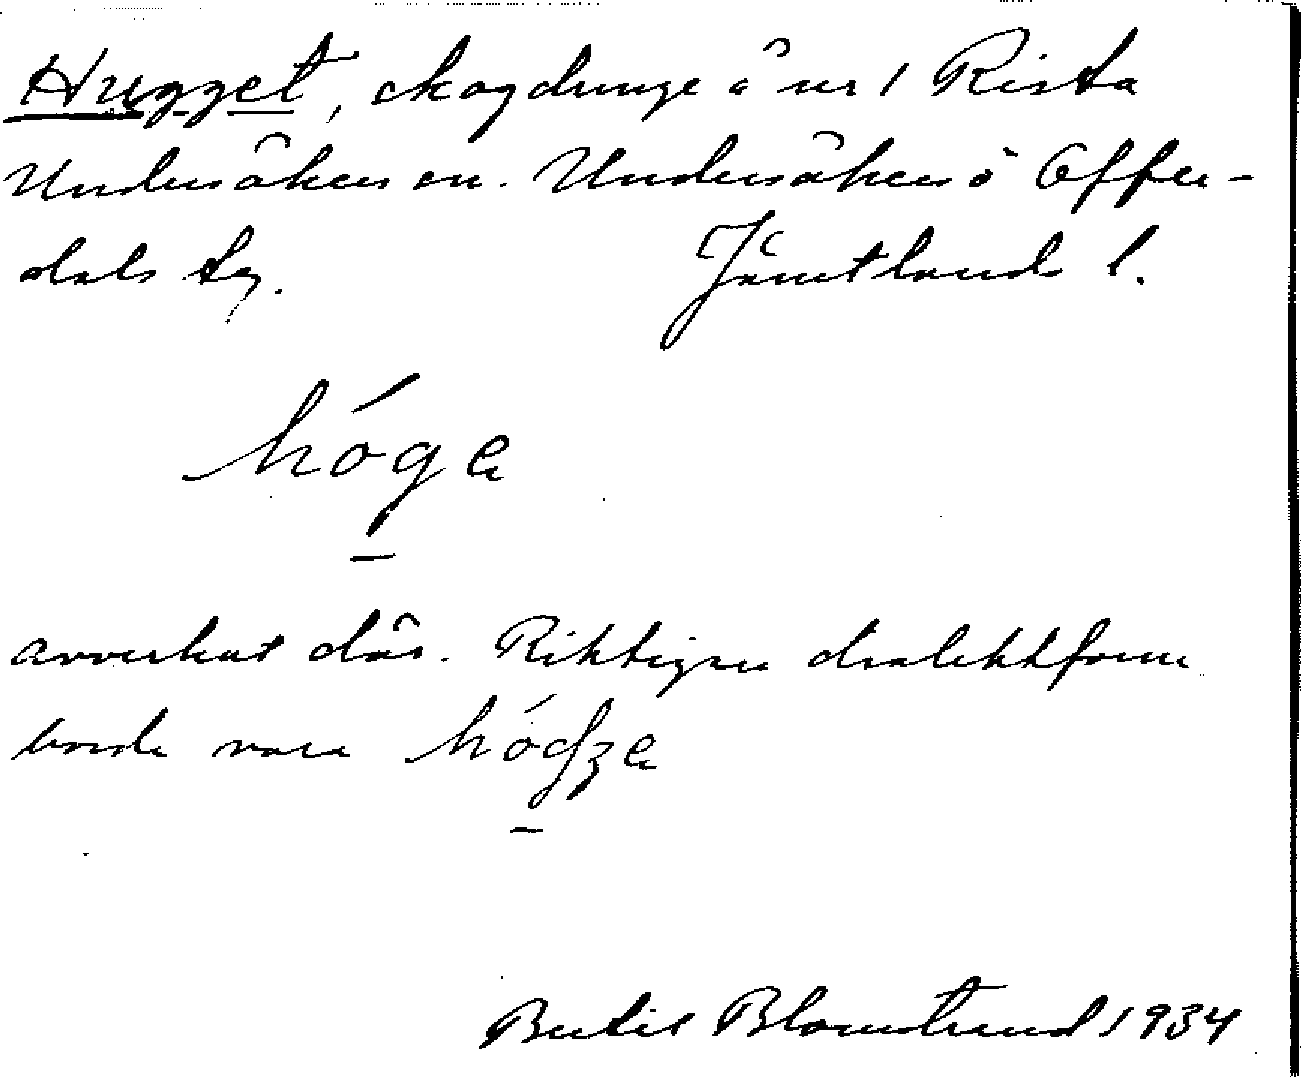 Hugget, skogdunge å nr 1 Rista
Undersåkers sn. Undersåkers o Offer-
dals tg. Jämtlands l.
hóga
avverkat där. Riktigare dialektform
borde vara hódʒa
Bertil Blomstrand 1934